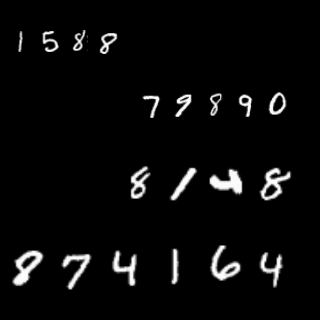 1588
79890
8148
874164